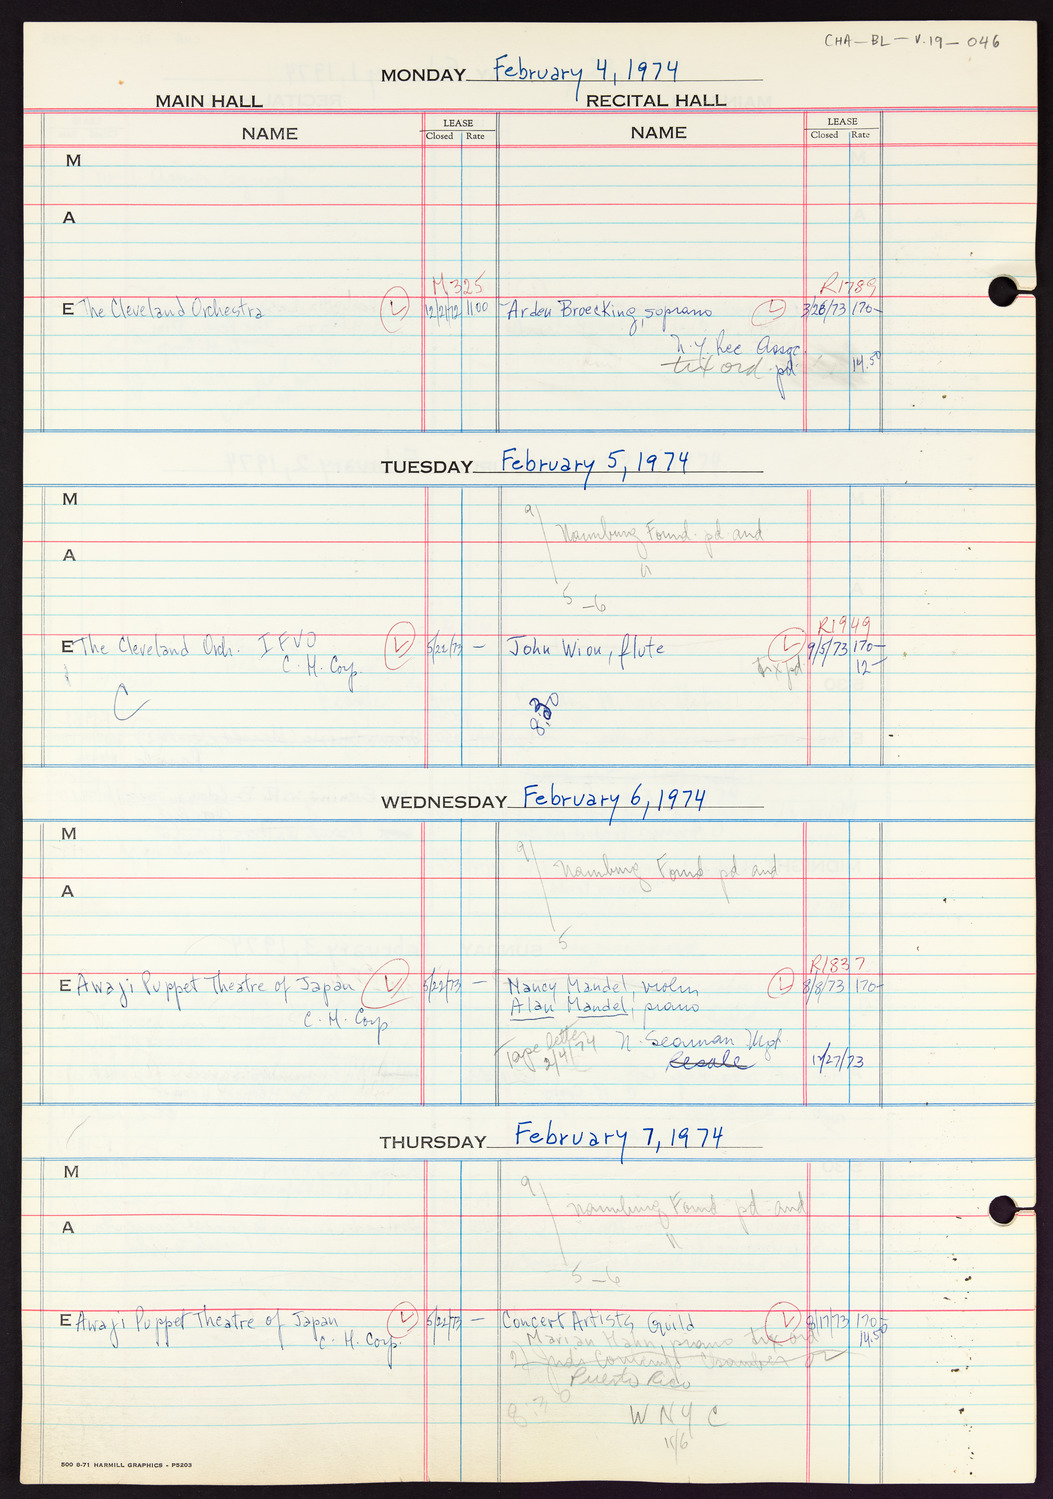 CHA-BL-V.19-046
MONDAY February 4, 1974
MAIN HALL RECITAL HALL
NAME LEASE Closed Rate NAME LEASE Closed Rate
M
A
M325 R1789
E The Cleveland Orchestra L 12/2/72 1100 Arden Broecking, soprano L 3/26/73 170-
N.Y. Rec Assoc.
tix ord pd 14.50
TUESDAY February 5, 1974
M
9/ Naumburg Found. pd and
A
"
5-6
R1949
E The Cleveland Orch. IFVO L 5/22/73 - John Wion, flute L 9/5/73 170-
C. H. Corp. tix pd 12-
C 8:30
WEDNESDAY February 6, 1974
M
9/ Naumburg Found pd and
A
5
R1837
E Awaji Puppet Theatre of Japan L 5/22/73 - Nancy Mandel, violin L 8/8/73 170-
C. H. Corp Alan Mandel, piano
Tape letter 2/4/74 N. Seaman Mgt
11/27/73
THURSDAY February 7, 1974
M
9/ Naumburg Found pd and
A
"
5-6
E Awaji Puppet Theatre of Japan L 5/22/73 - Concert Artists Guild L 8/17/73 170-
C. H. Corp. Marian Hahn, piano tix ord 14.50
Puerto Rico
8:30 WNYC
11/6
500 8-71 HARMILL GRAPHICS - P5203